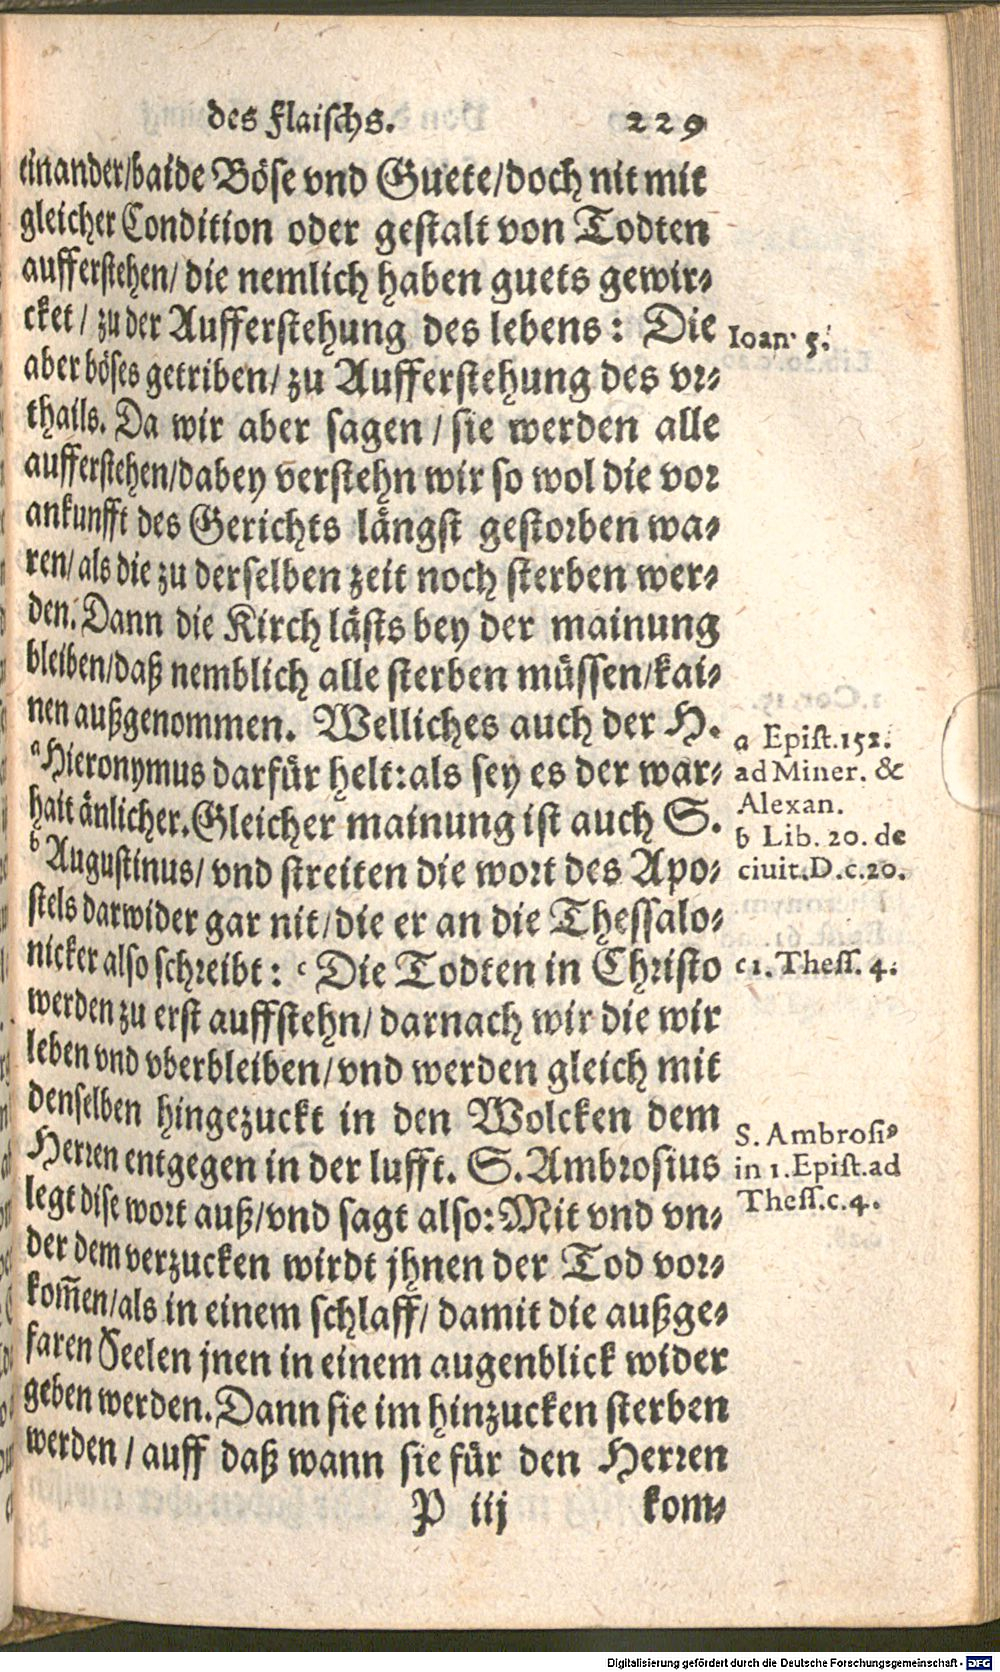 des Flaischs. 229
einander/baide Böse vnd Guete/doch nit mit
gleicher Condition oder gestalt von Todten
aufferstehen/ die nemlich haben guets gewir-
cket / zu der Aufferstehung des lebens: Die
Ioan. 5.
aber böses getriben/ zu Aufferstehung des vr-
thails. Da wir aber sagen / sie werden alle
aufferstehen/dabey verstehn wir so wol die vor
ankunfft des Gerichts längst gestorben wa-
ren/ als die zu derselben zeit noch sterben wer-
den. Dann die Kirch lästs bey der mainung
bleiben/daß nemblich alle sterben müssen/kai-
nen außgenommen. Welliches auch der H.
a Hieronymus darfür helt: als sey es der war-
hait änlicher. Gleicher mainung ist auch S.
b Augustinus/ vnd streiten die wort des Apo-
a Epist. 152.
ad Miner. &
Alexan.
b Lib. 20. de
ciuit. D. c. 20.
stels darwider gar nit/die er an die Thessalo-
nicker also schreibt: c Die Todten in Christo
c 1. Thess. 4.
werden zu erst auffstehn/ darnach wir die wir
leben vnd vberbleiben/vnd werden gleich mit
denselben hingezuckt in den Wolcken dem
Herren entgegen in der lufft. S. Ambrosius
legt dise wort auß/vnd sagt also: Mit vnd vn-
S. Ambrosi-
in 1. Epist. ad
Thess. c. 4.
der dem verzucken wirdt jhnen der Tod vor-
kom̄en/als in einem schlaff/ damit die außge-
faren Seelen jnen in einem augenblick wider
geben werden. Dann sie im hinzucken sterben
werden / auff daß wann sie für den Herren
P iij kom-
Digitalisierung gefördert durch die Deutsche Forschungsgemeinschaft - DFG